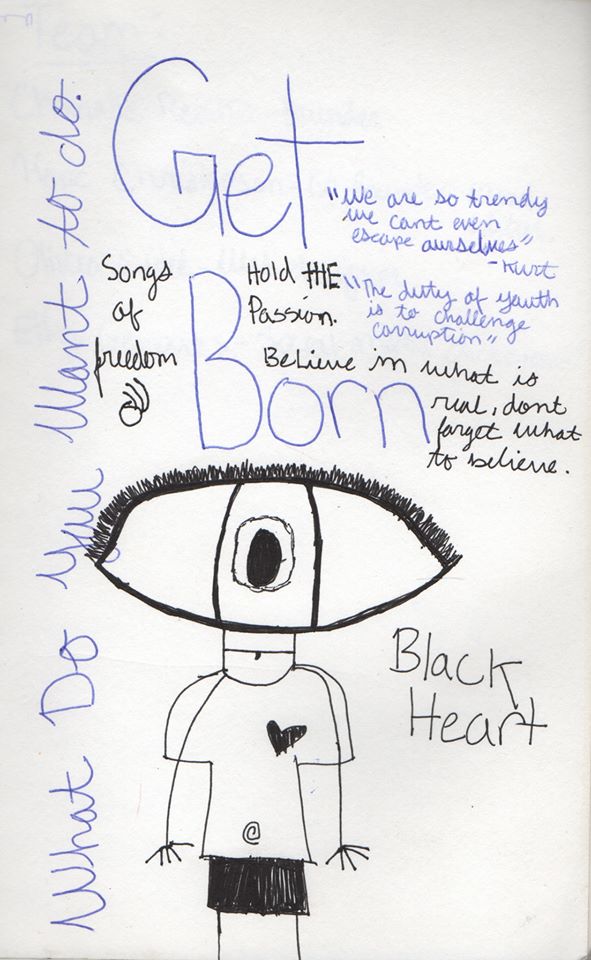 What Do You Want to do.
Get
Born
"We are so trendy
we cant even
escape ourselves"
-Kurt
Songs
of
freedom
Hold THE
Passion.
"The duty of youth
is to challenge
corruption"
Believe in what is
real, dont
forget what
to believe.
Black
Heart